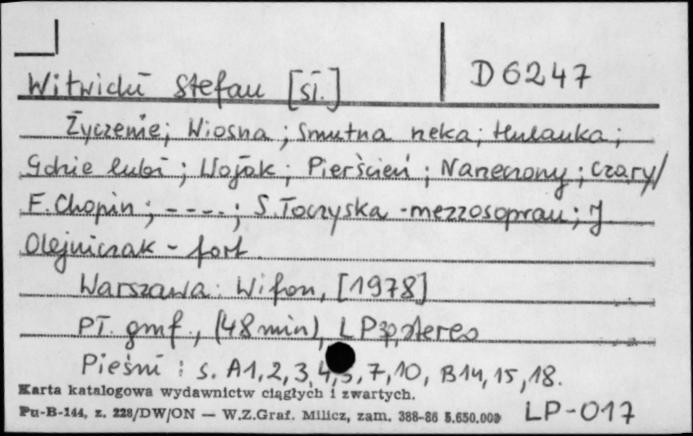 D6247
Witwicki Stefan [sł.]
Życzenie; Wiosna; Smutna rzeka; Hulanka;
Gdzie lubi; Wojak; Pierścień; Narzeczony; Czary/
F. Chopin; ----; S. Toczyska - mezzosopran; J
Olejniczak - fort.
Warszawa: Wifon, [1978]
Pł. gmf., (48 min), LP30, stereo
Pieśni: s. A1,2,3,4,5,7,10, B14,15,18.
Karta katalogowa wydawnictw ciągłych i zwartych.
Pu-B-144, z. 228/DW/ON — W.Z.Graf. Milicz, zam. 388-86 5.650.000
LP-017